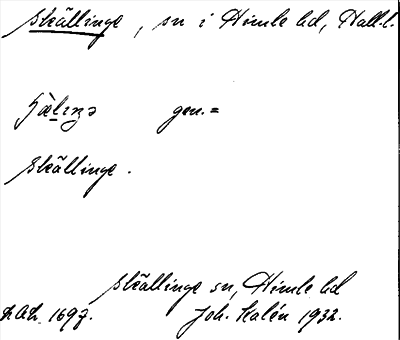 Skällinge, sn i Himle hd, Hall.l.
gen.=
Skällinge.
Skällinge sn, Himle hd
LAL 1697. Joh. Kalén 1932.